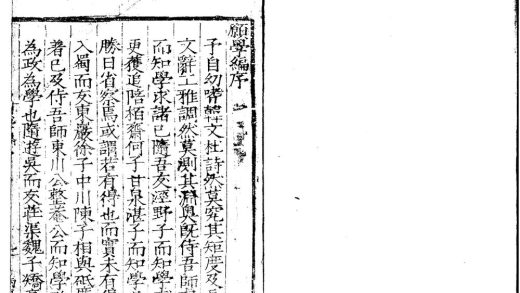 願學編序
予自幼嗜韓文杜詩然莫究其矩度及
文辭工雅調然莫測其淵奧旣侍吾師
而知學求諸已隨吾友涇野子而知學
更獲追陪栢齋何子甘泉湛子而知學
勝日省察焉或謂若有得也而實未有
入蜀而友東巖徐子中川陳子相與砥
著已及侍吾師東川公整菴公而知學
為政為學也隨遊吳而友莊渠魏子矯